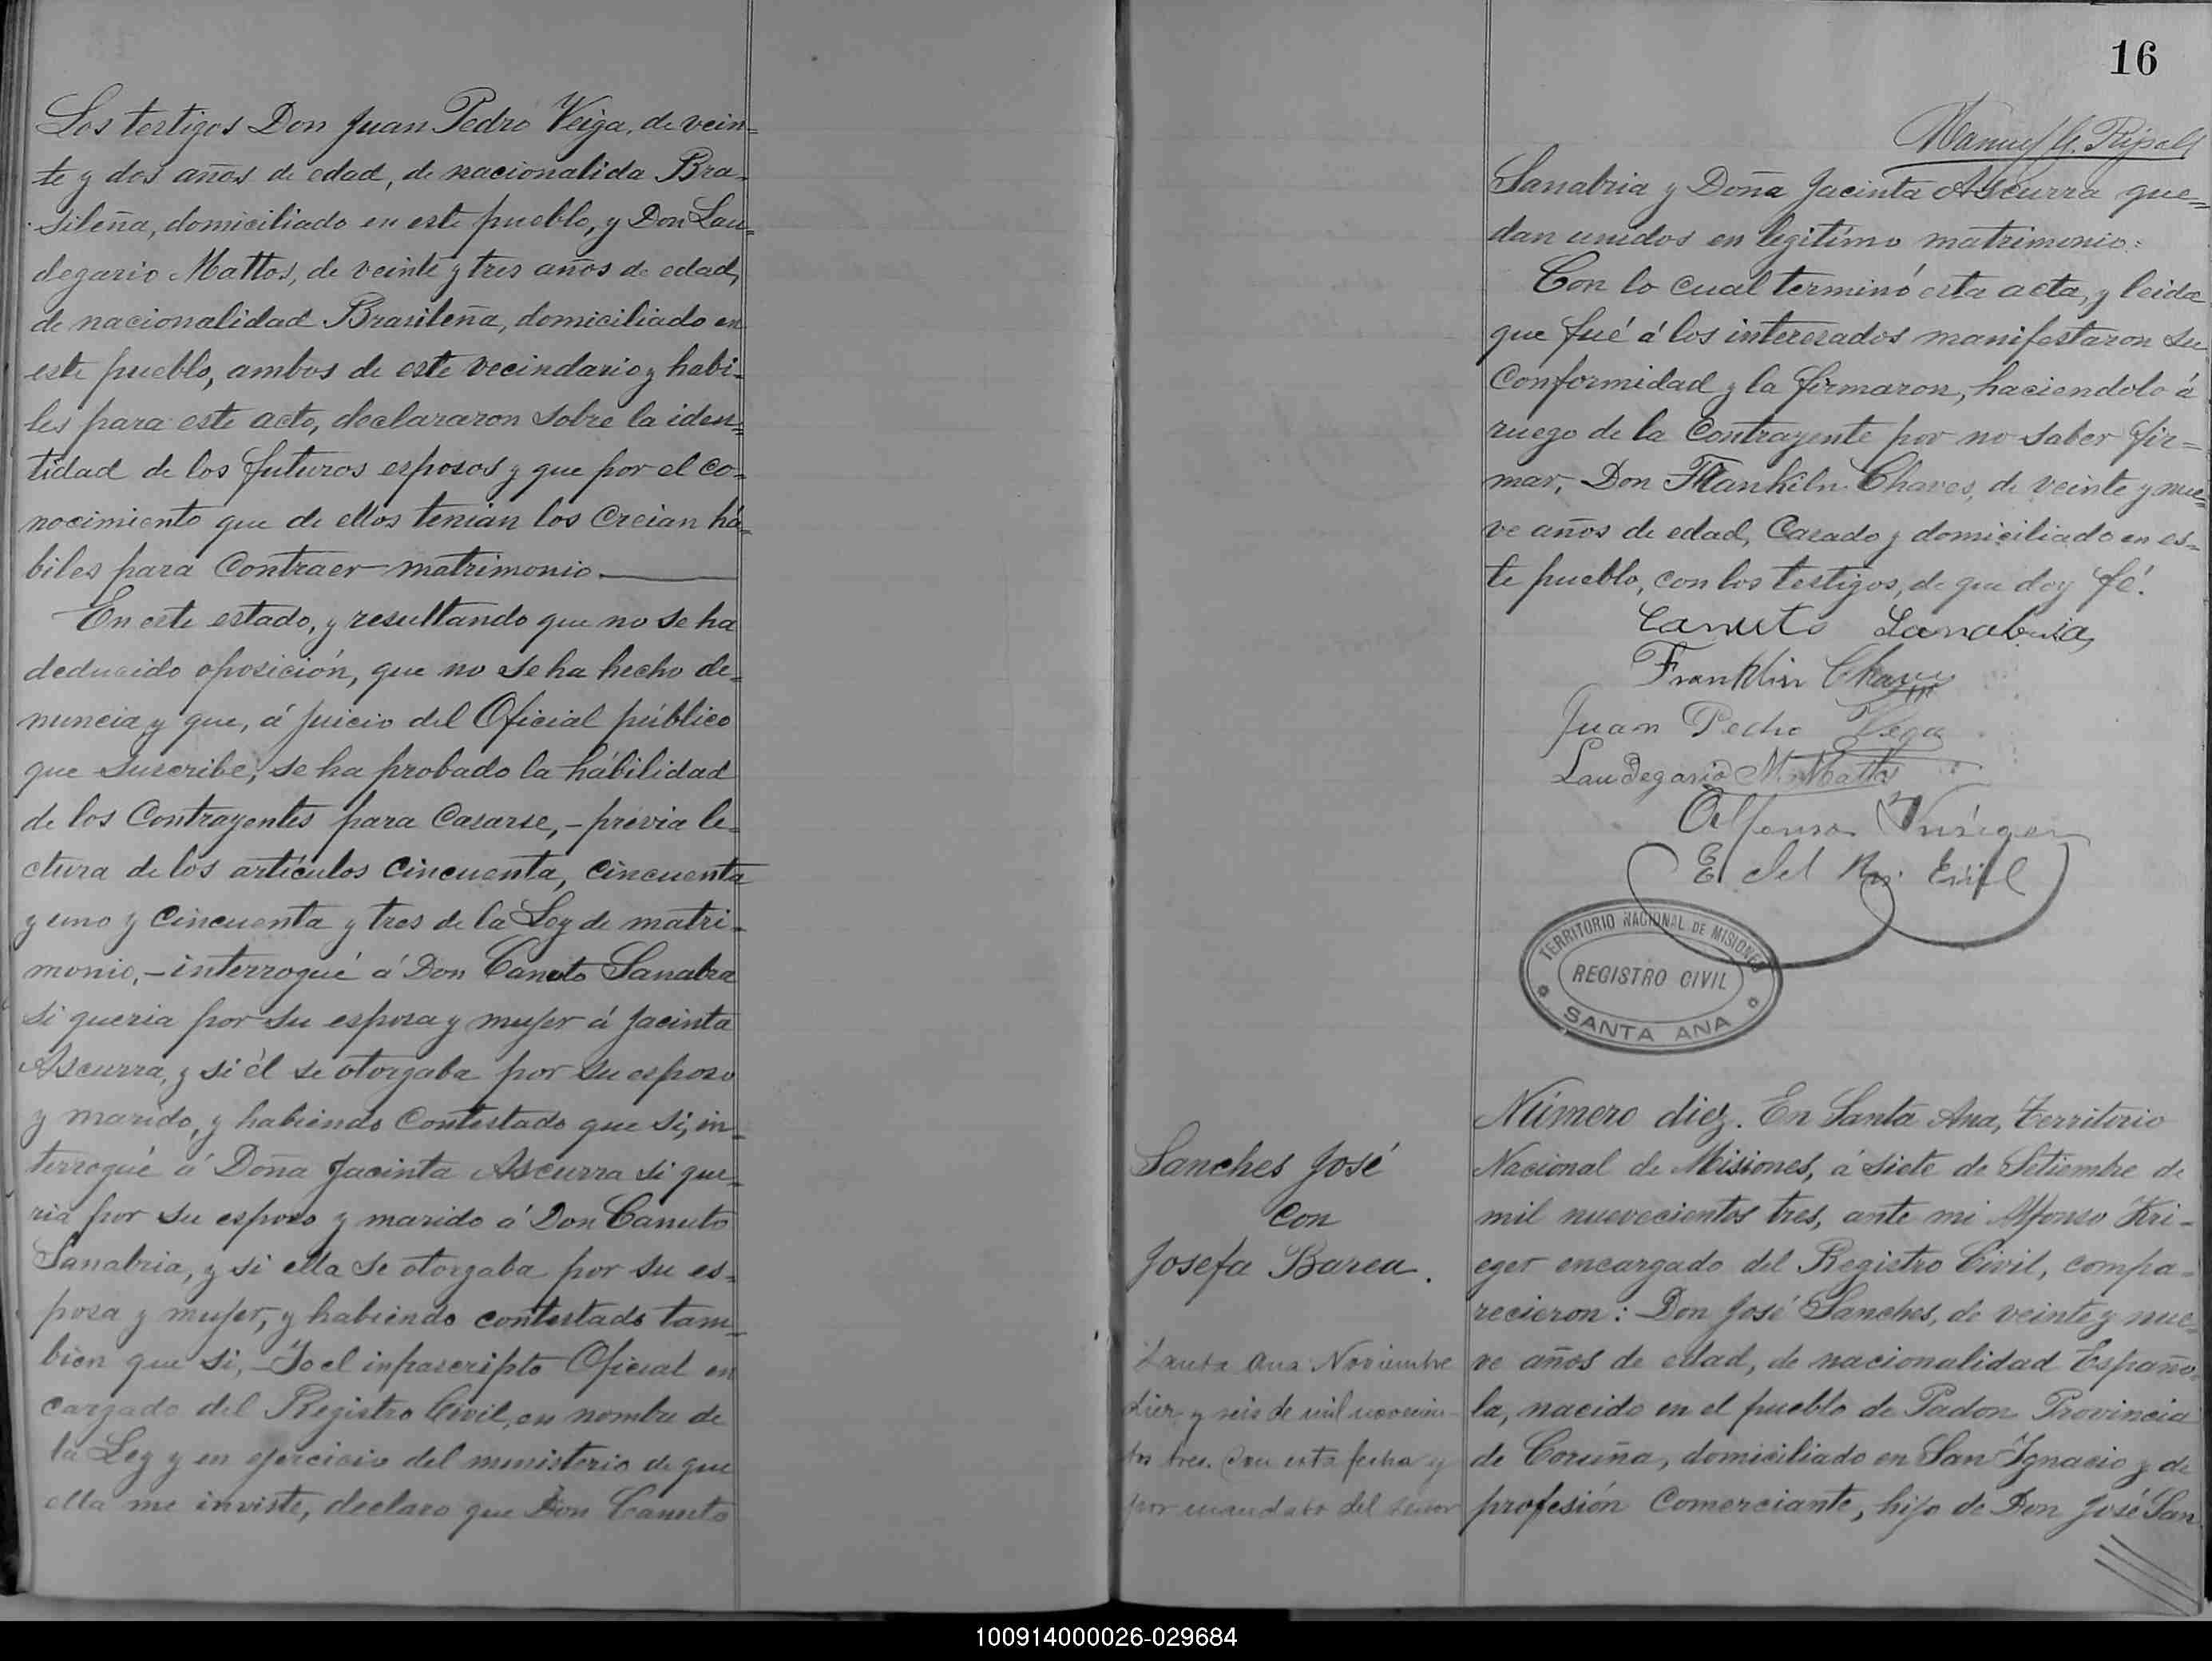 Los testigos Don Juan Pedro Veiga, de vein=
te y dos años de edad, de nacionalida Bra-
sileña, domiciliado en este pueblo, y Don Lau=
degario Mattos, de veinte y tres años de edad,
de nacionalidad Brasileña, domiciliado en
este pueblo, ambos de este vecindario y habi-
les para este acto, declararon sobre la iden=
tidad de los futuros esposos y que por el co-
nocimiento que de ellos tenian los creian há=
biles para contraer matrimonio.
En este estado, y resultando que no se ha
deducido oposición, que no se ha hecho de-
nuncia y que, á juicio del Oficial público
que suscribe, se ha probado la hábilidad
de los contrayentes para casarse, - previa le-
ctura de los artículos cincuenta, cincuenta
y uno y cincuenta y tres de la Ley de matri-
monio, - interrogué á Don Canuto Sanabra
si queria por su esposa y mujer á Jacinta
Ascurra, y si él se otorgaba por su esposo
y marido, y habiendo contestado que si, in-
terrogué á Doña Jacinta Ascurra si que-
ria por su esposo y marido á Don Canuto
Sanabria, y si ella se otorgaba por su es-
posa y mujer, y habiendo contestado tam-
bien que si, - Yo el infrascripto Oficial en
cargado del Registro Civil, en nombre de
la Ley y en ejercicio del ministerio de que
ella me inviste, declaro que Don Canuto
16
Manuel G. Ripoll
Sanabria y Doña Jacinta Ascurra que=
dan unidos en legitimo matrimonio.
Con lo cual terminó esta acta, y leida
que fué á los interesados manifestaron su
conformidad y la firmaron, haciendolo á
ruego de la contrayente por no saber fir=
mar, Don Frankiln Chaves, de veinte y nue=
ve años de edad, casado y domiciliado en es-
te pueblo, con los testigos, de que doy fé.
Canuto Sanabria
Franklin Chaves
Juan Pedro Vega
Laudegario M Mattos
Alfonso Krieger
E. del Civil
TERRITORIO NACIONAL DE MISIONES
REGISTRO CIVIL
SANTA ANA
Sanches José
con
Josefa Barea.
Santa Ana Noviembre
diez y seis de mil novecien-
tos tres. Con esta fecha y
por mandato del Señor
Número diez. En Santa Ana, Territorio
Nacional de Misiones, á siete de Setiembre de
mil nuevecientos tres, ante mi Alfonso Kri-
eger encargado del Registro Civil, compa-
recieron: Don José Sanches, de veinte y nue-
ve años de edad, de nacionalidad Españo-
la, nacido en el pueblo de Padon Provincia
de Coruña, domiciliado en San Ignacio y de
profesión Comerciante, hijo de Don José San
100914000026-029684